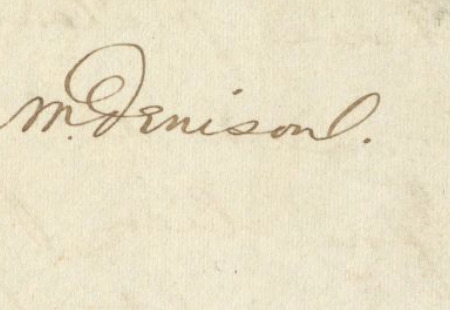 M. Denison.